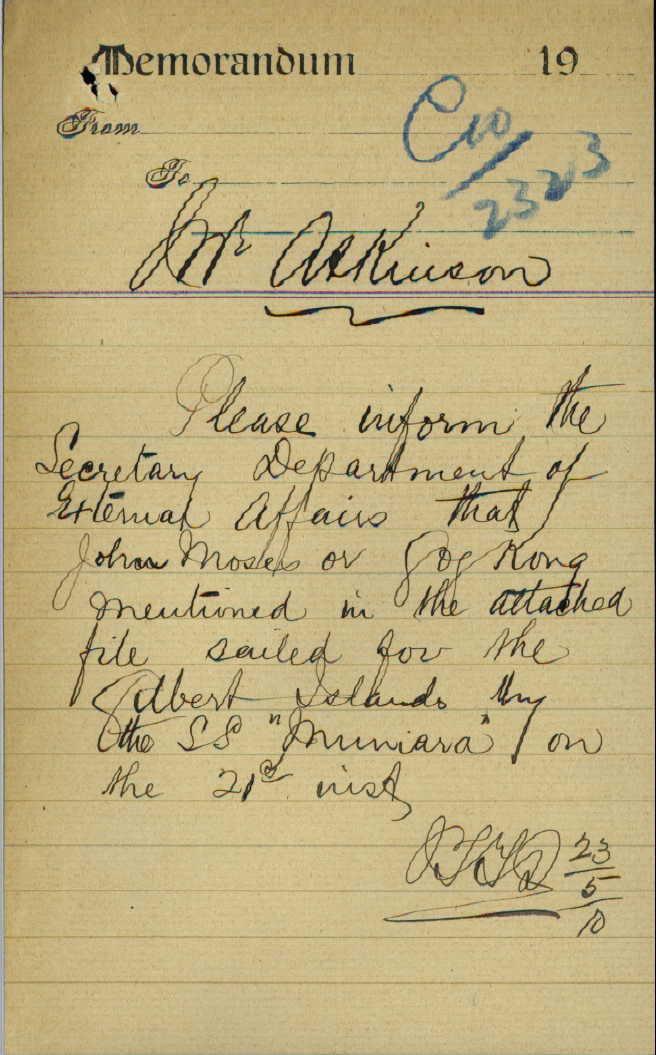 Memorandum 19
From
C10/2323
To
Mr Atkinson
Please inform the
Secretary Department of
External Affairs that
John Moses or Gog Kong
mentioned in the attached
file sailed for the
Gilbert Islands by
the SS "Muniara" on
the 21st inst
23/5/10